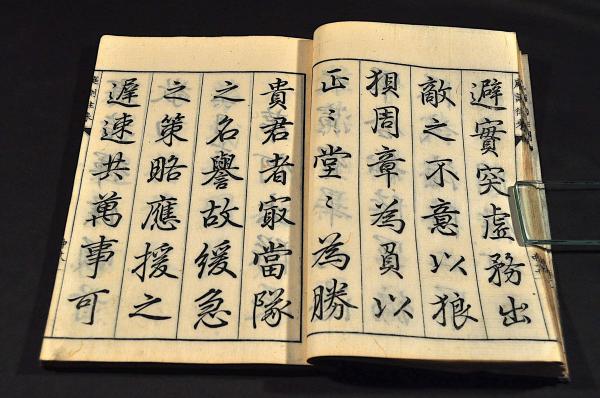 避實突虚務出
敵之不意以狼
狽周章為負以
正〻堂〻為勝
貴君者冣當隊
之名譽故緩急
之策略應援之
遅速共萬事可